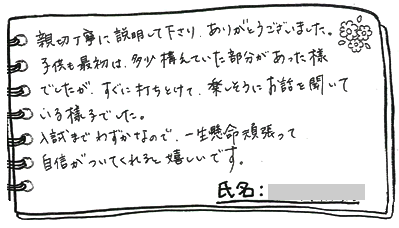 親切丁寧に説明して下さり、ありがとうございました。
子供も最初は、多少構えていた部分があった様
でしたが、すぐに打ちとけて、楽しそうにお話を聞いて
いる様子でした。
入試までわずかなので、一生懸命頑張って
自信がついてくれると嬉しいです。
氏名: